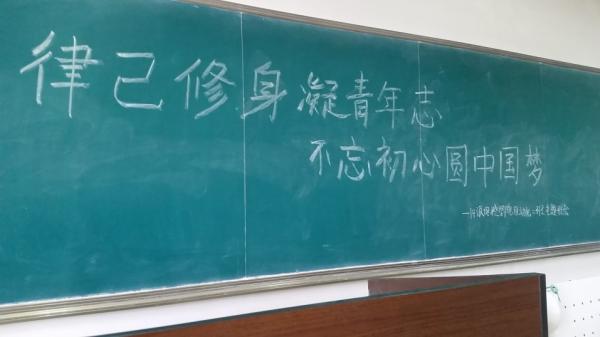 律己修身凝青年志
不忘初心圆中国梦